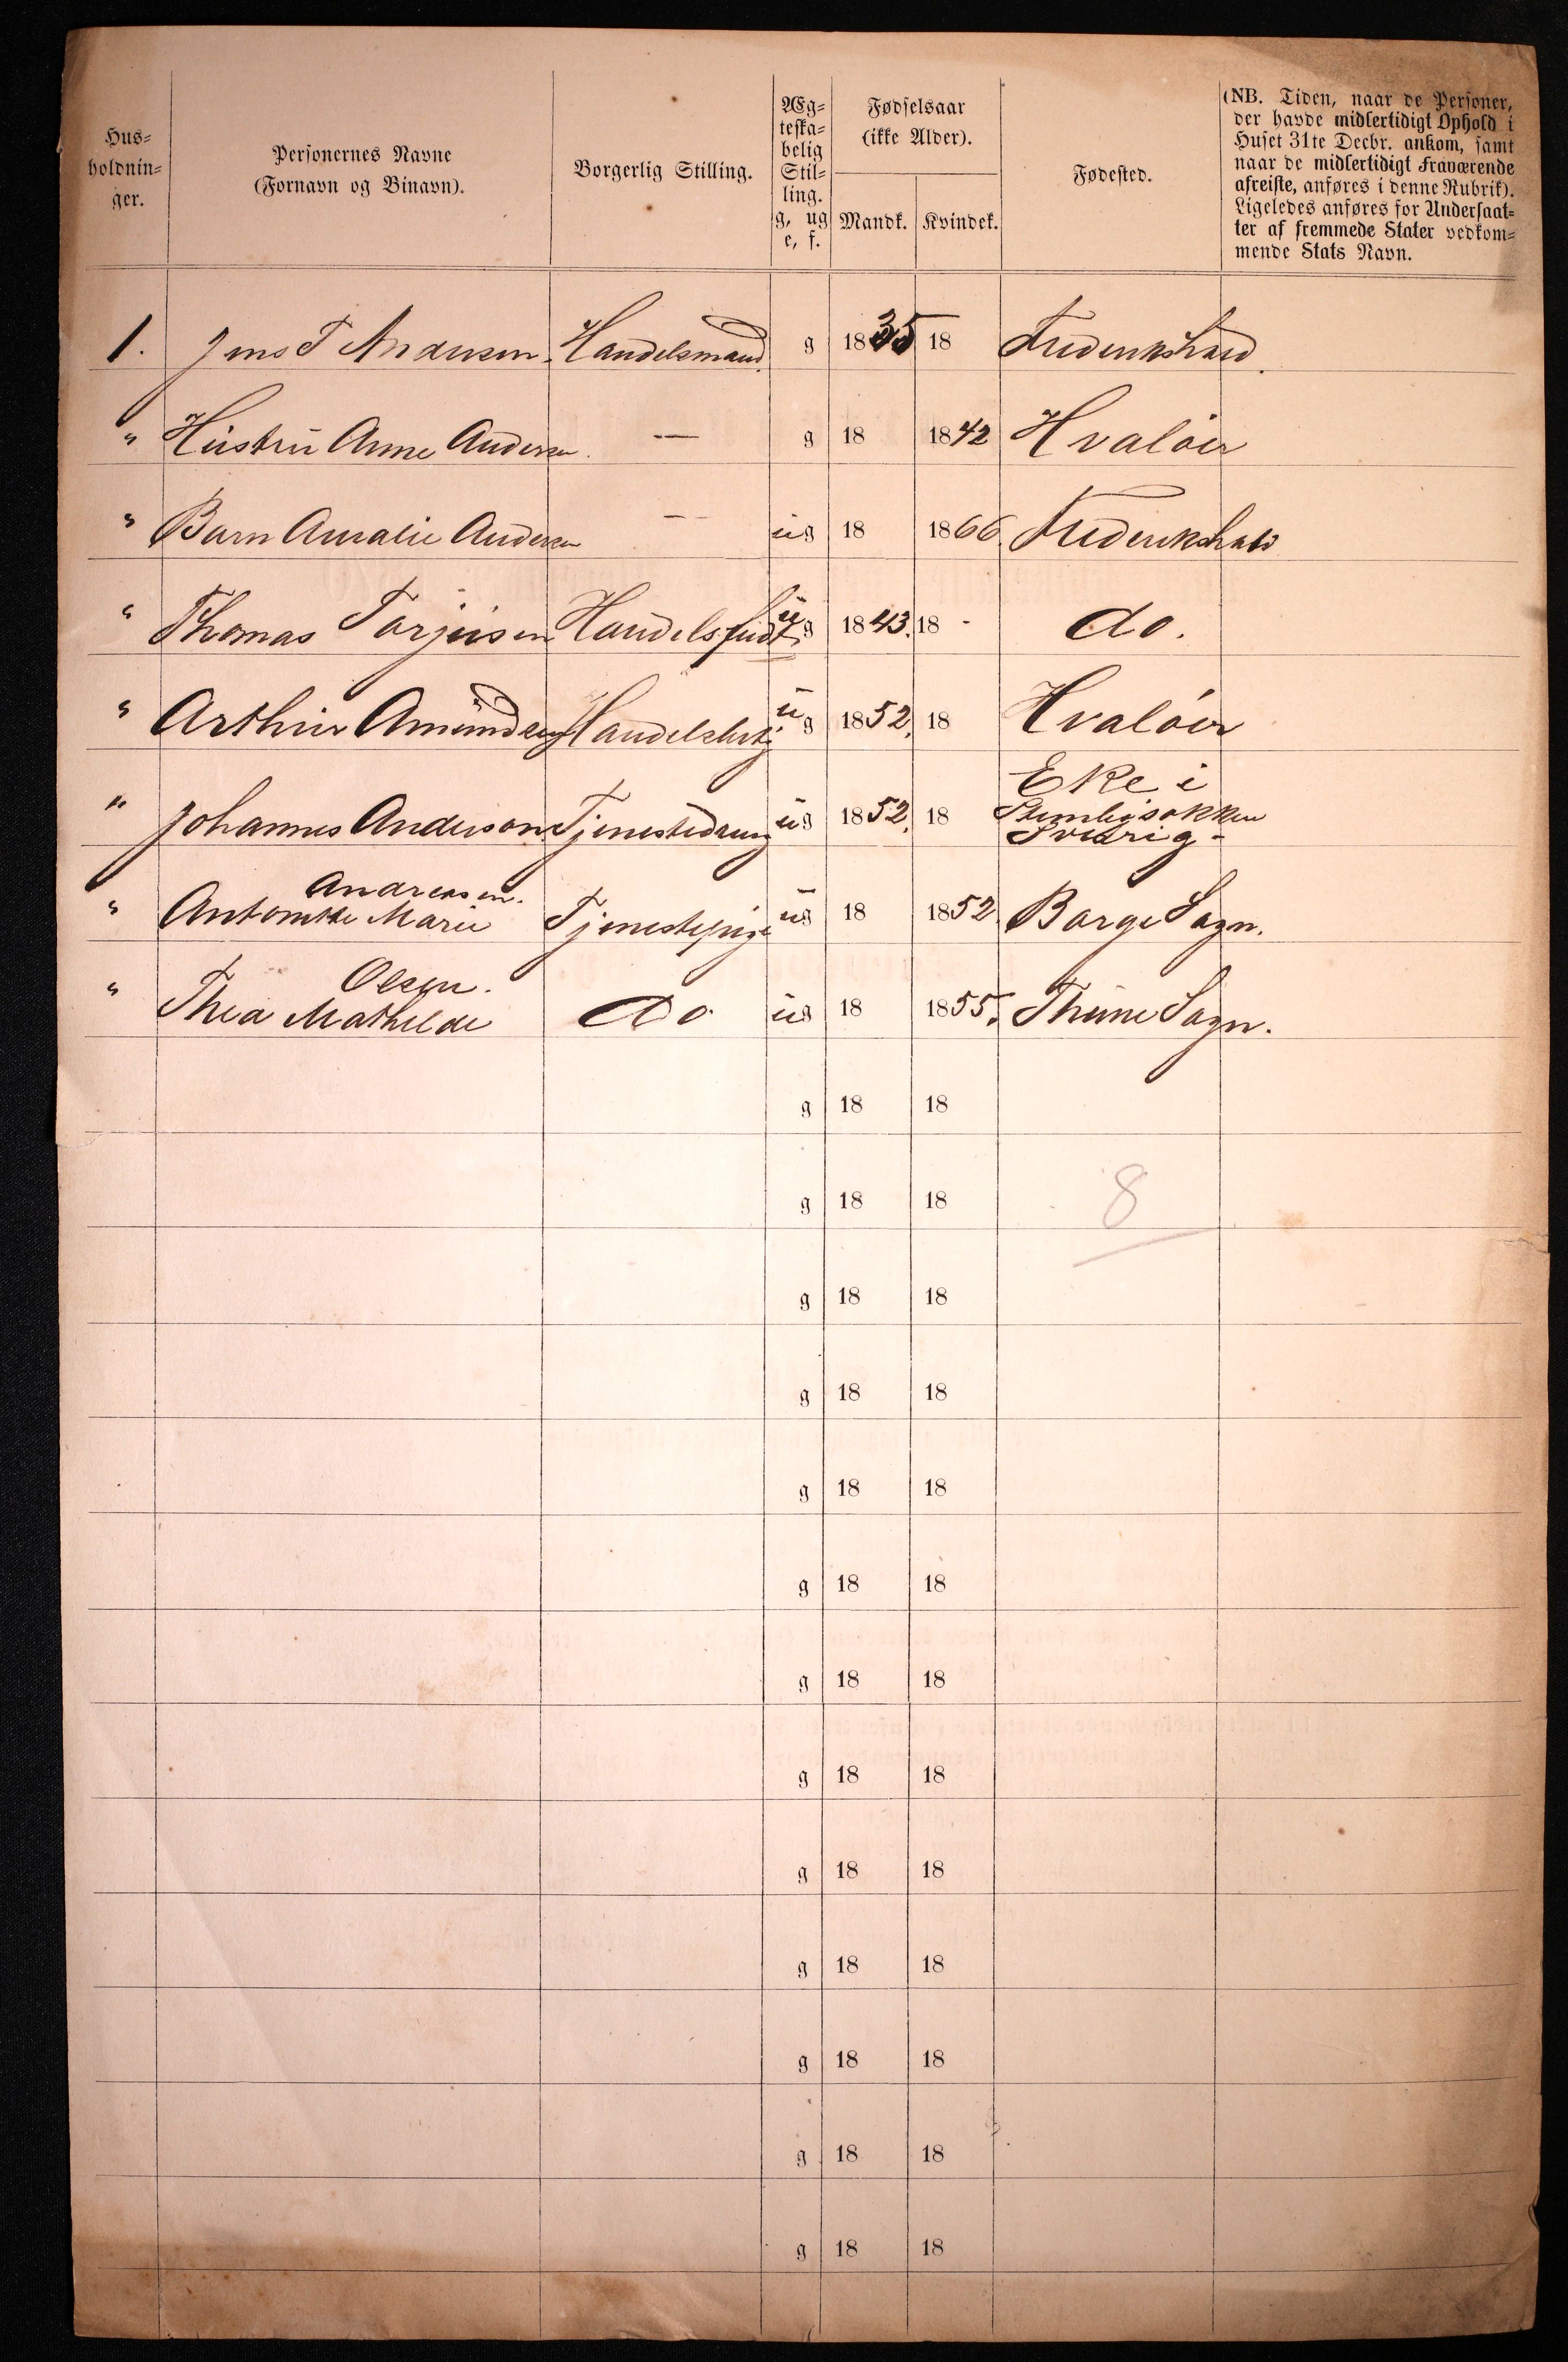 Hus-
holdnin-
ger.
Personernes Navne
(Fornavn og Binavn).
Borgerlig Stilling.
Æg-
teska-
belig
Stil-
ling.
g, ug
e, f.
Fødselsaar
(ikke Alder).
Mandk. Kvindek.
Fødested.
(NB. Tiden, naar de Personer,
der havde midlertidigt Ophold i
Huset 31te Decbr. ankom, samt
naar de midlertidigt Fraværende
afreiste, anføres i denne Rubrik).
Ligeledes anføres for Undersaat-
ter af fremmede Stater vedkom-
mende Stats Navn.
1. Jens T Andersen. Handelsmand. g 1835 18 Frederikshald.
" Hustru Anne Andersen. — g 18 1842 Hvaløer
" Barn Amalie Andersen — ug 18 1866. Frederikshald
" Thomas Torjusen Handelsfuldt. ug 1843. 18 - do.
" Arthur Amundsen Handelsbetj ug 1852. 18 Hvaløer
Eke i
" Johannes Anderson Tjenestedreng ug 1852. 18 sokken
Sverig-
Andreasen.
" Antonette Marie Tjenestepige ug 18 1852. Borge Sogn.
Olsen.
" Thea Mathilde do ug 18 1855. Thune Sogn.
g 18 18
g 18 18 8
g 18 18
g 18 18
g 18 18
g 18 18
g 18 18
g 18 18
g 18 18
g 18 18
g 18 18
g 18 18
g 18 18